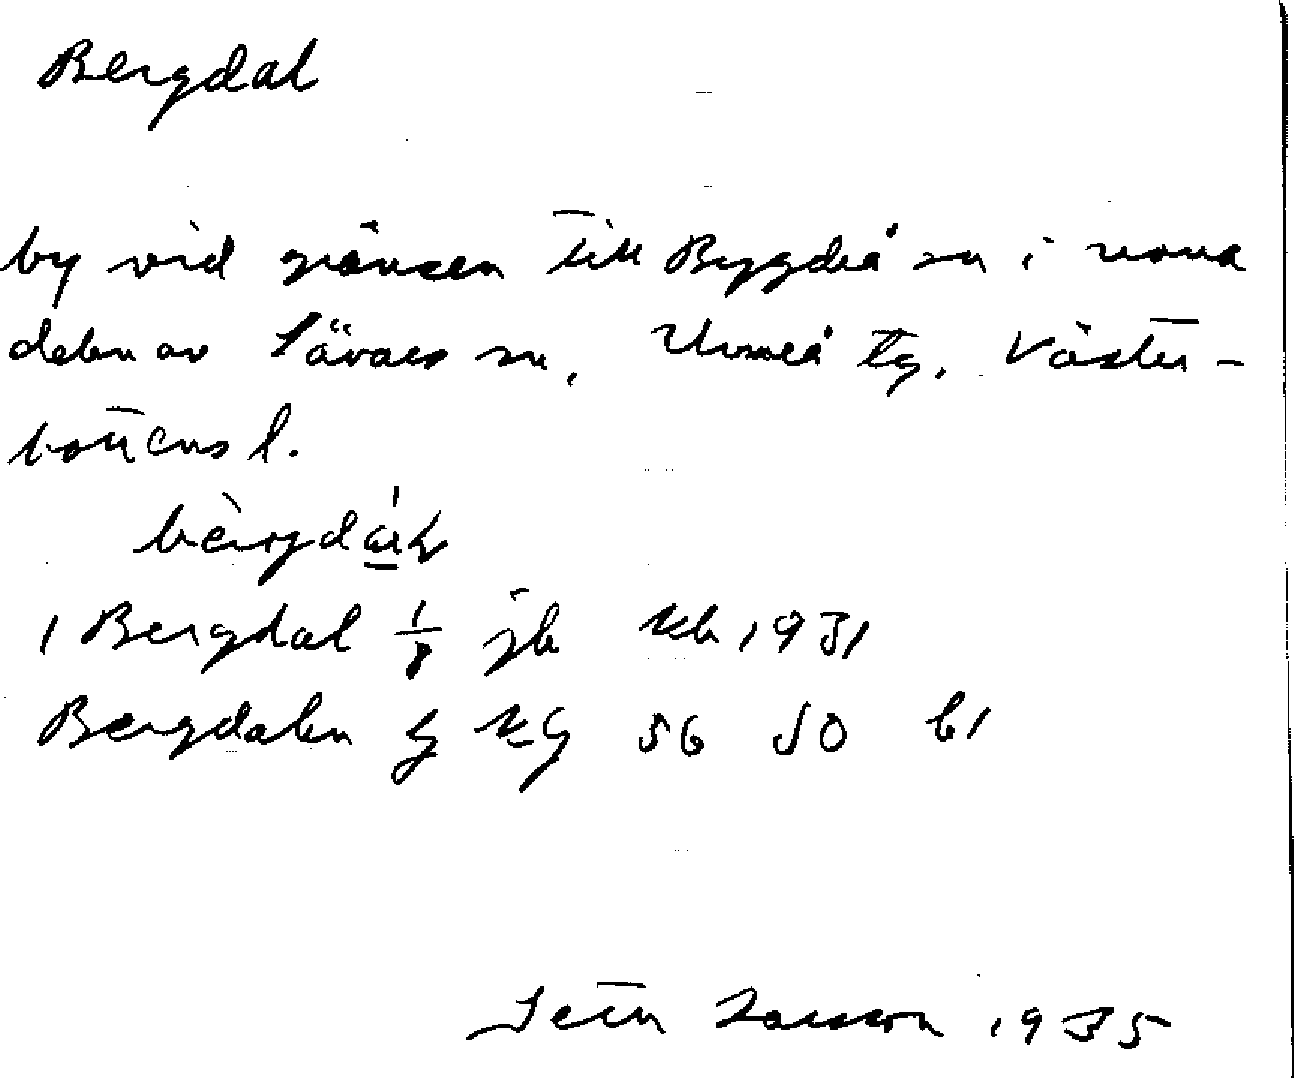 Bergdal
by vid gränsen till Bygdeå sn i norra
delen av Sävars sn, Umeå tg, Väster-
bottens l.
1 Bergdal 1/8 jb 1931
Bergdalen g kg 56 50 b1
Sten Larsson 1935